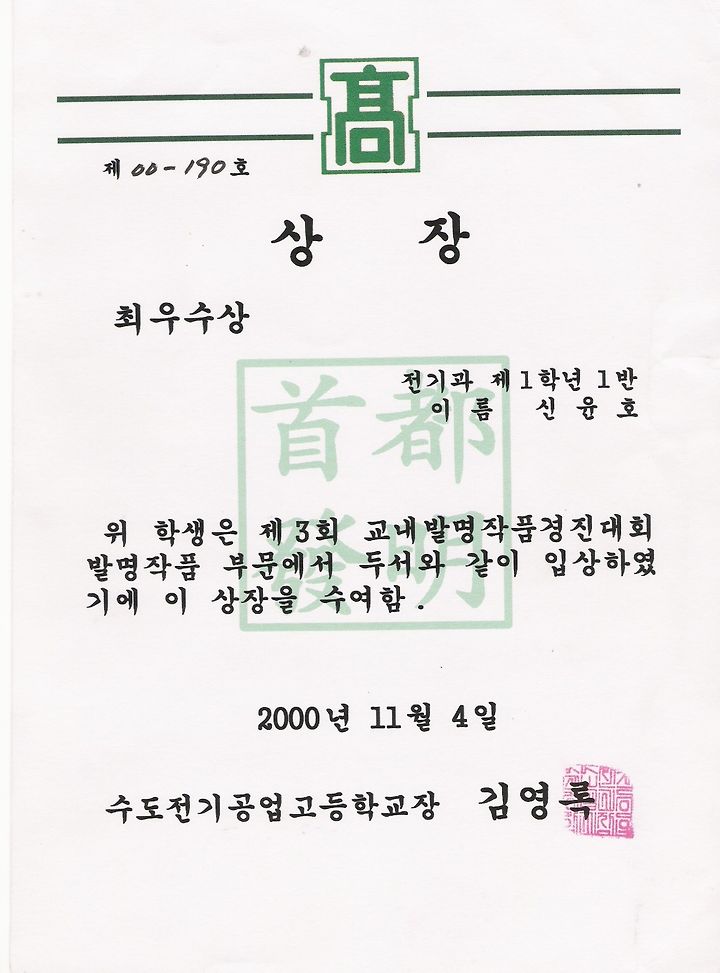 高
제 00-190 호
상 장
최우수상
전기과 제1학년 1반
이 름 신 윤 호
首都
發明
위 학생은 제3회 교내발명작품경진대회
발명작품 부문에서 두서와 같이 입상하였
기에 이 상장을 수여함.
2000년 11월 4일
수도전기공업고등학교장 김영록